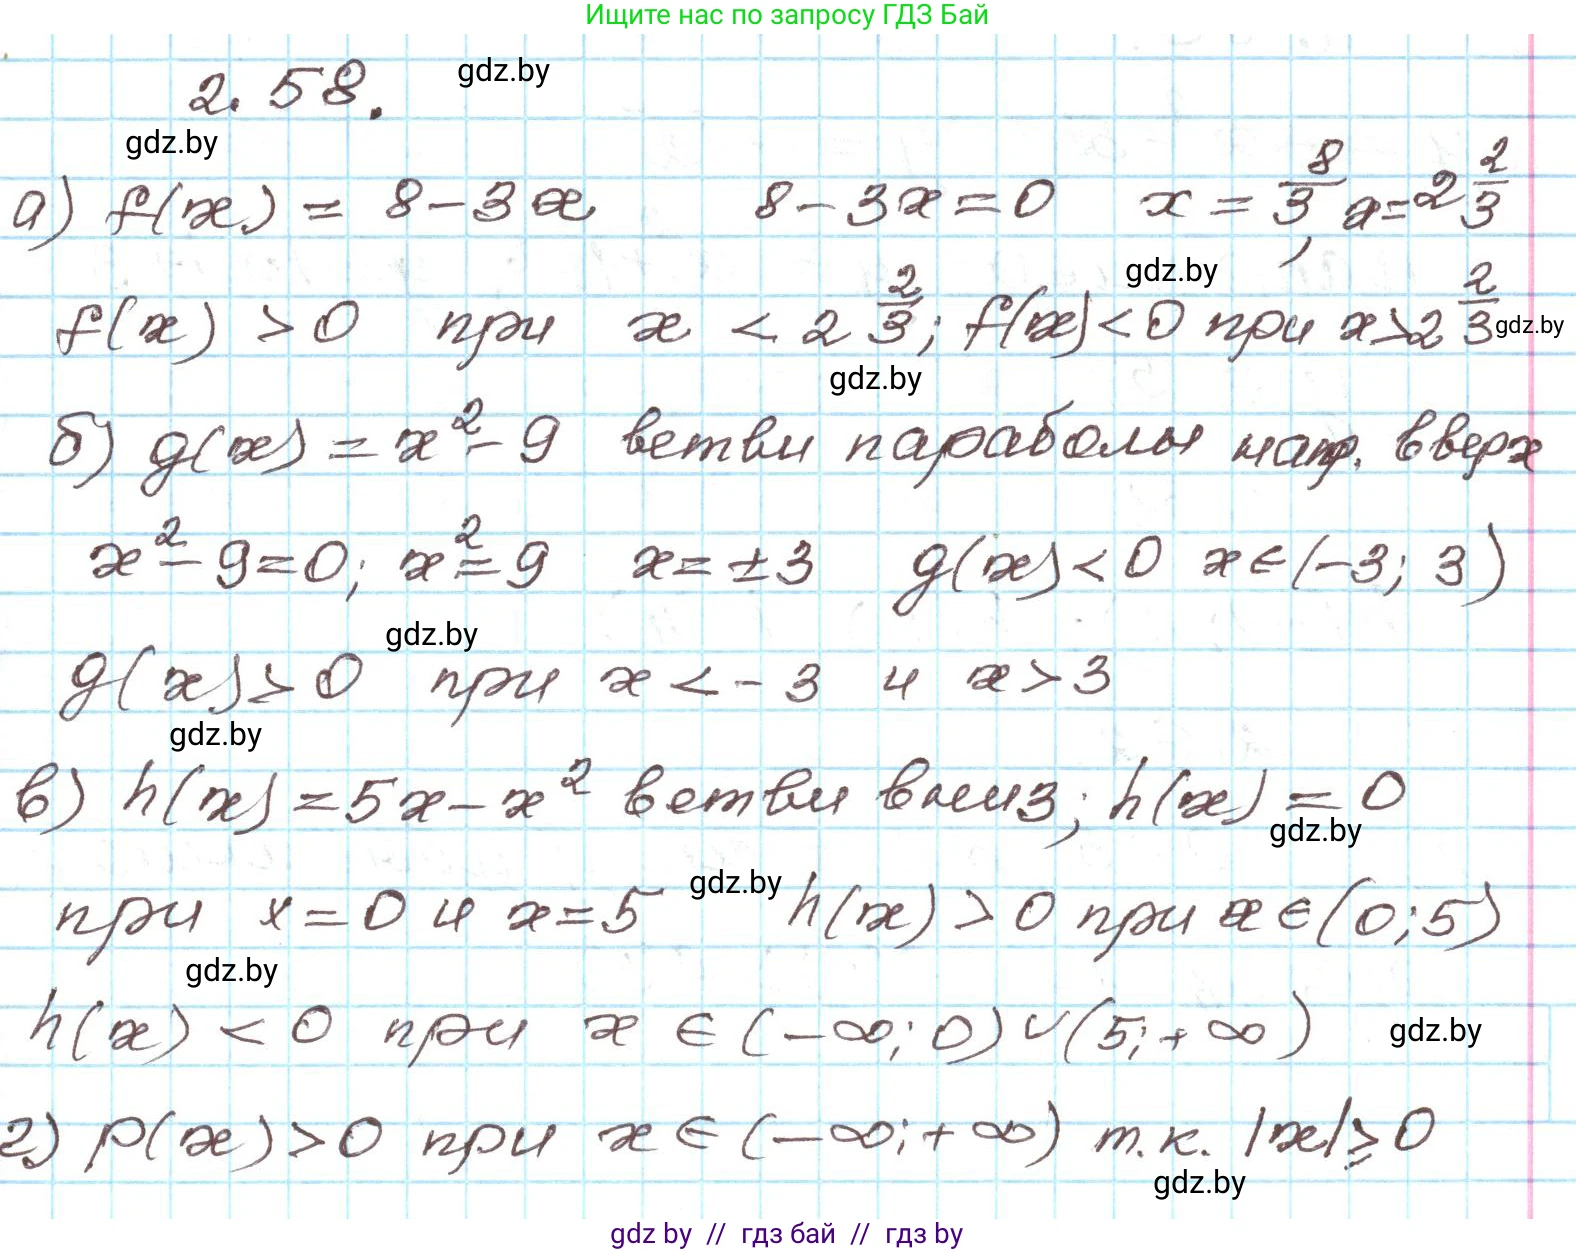 Ищите нас по запросу ГДЗ Бай
2.58. gdz.by
gdz.by
а) f(x) = 8 - 3x 8 - 3x = 0 x = 8/3, x = 2 2/3
gdz.by
f(x) > 0 при x < 2 2/3; f(x) < 0 при x > 2 2/3 gdz.by
gdz.by
б) g(x) = x² - 9 ветви параболы напр. вверх
x² - 9 = 0; x² = 9 x = ±3 g(x) < 0 x ∈ (-3; 3)
gdz.by
g(x) > 0 при x < -3 и x > 3
gdz.by
в) h(x) = 5x - x² ветви вниз; h(x) = 0
gdz.by
gdz.by
при x = 0 и x = 5 h(x) > 0 при x ∈ (0; 5)
gdz.by
h(x) < 0 при x ∈ (-∞; 0) ∪ (5; +∞) gdz.by
г) p(x) > 0 при x ∈ (-∞; +∞) т.к. |x| ≥ 0
gdz.by
gdz by // гдз бай // гдз by